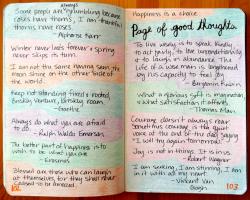 Always
Some people are grumbling because
roses have thorns; I am thankful
thorns have roses.
- Alphonse Karr
Winter never lasts forever & spring
never skips its turn.
I am not the same having seen the
moon shine on the other side of the
world.
Keep not standing fixed & rooted,
Briskly venture, briskly roam.
- Goethe
Always do what you are afraid
to do.
- Ralph Waldo Emerson
The better part of happiness is to
wish to be what you are.
- Erasmus
Blessed are those who can laugh
at themselves, for they shall never
cease to be amused.
Happiness is a choice.
Page of good thoughts.
To live wisely is to speak kindly,
to act justly, to live unconditionally
& to laugh in abundance. The
life of a wise man is brightened
by his capacity to feel joy.
Benjamin
What a glorious gift is imagination
& what satisfaction it affords.
Thomas Mann
Courage doesn't always roar.
Sometimes courage is the quiet
voice at the end of the day saying
"I will try again tomorrow."
Joy is not in things. It is in us.
- Robert Wagner
I am seeking, I am striving, I am
in it with all my heart.
- Vincent Van
Gogh
103